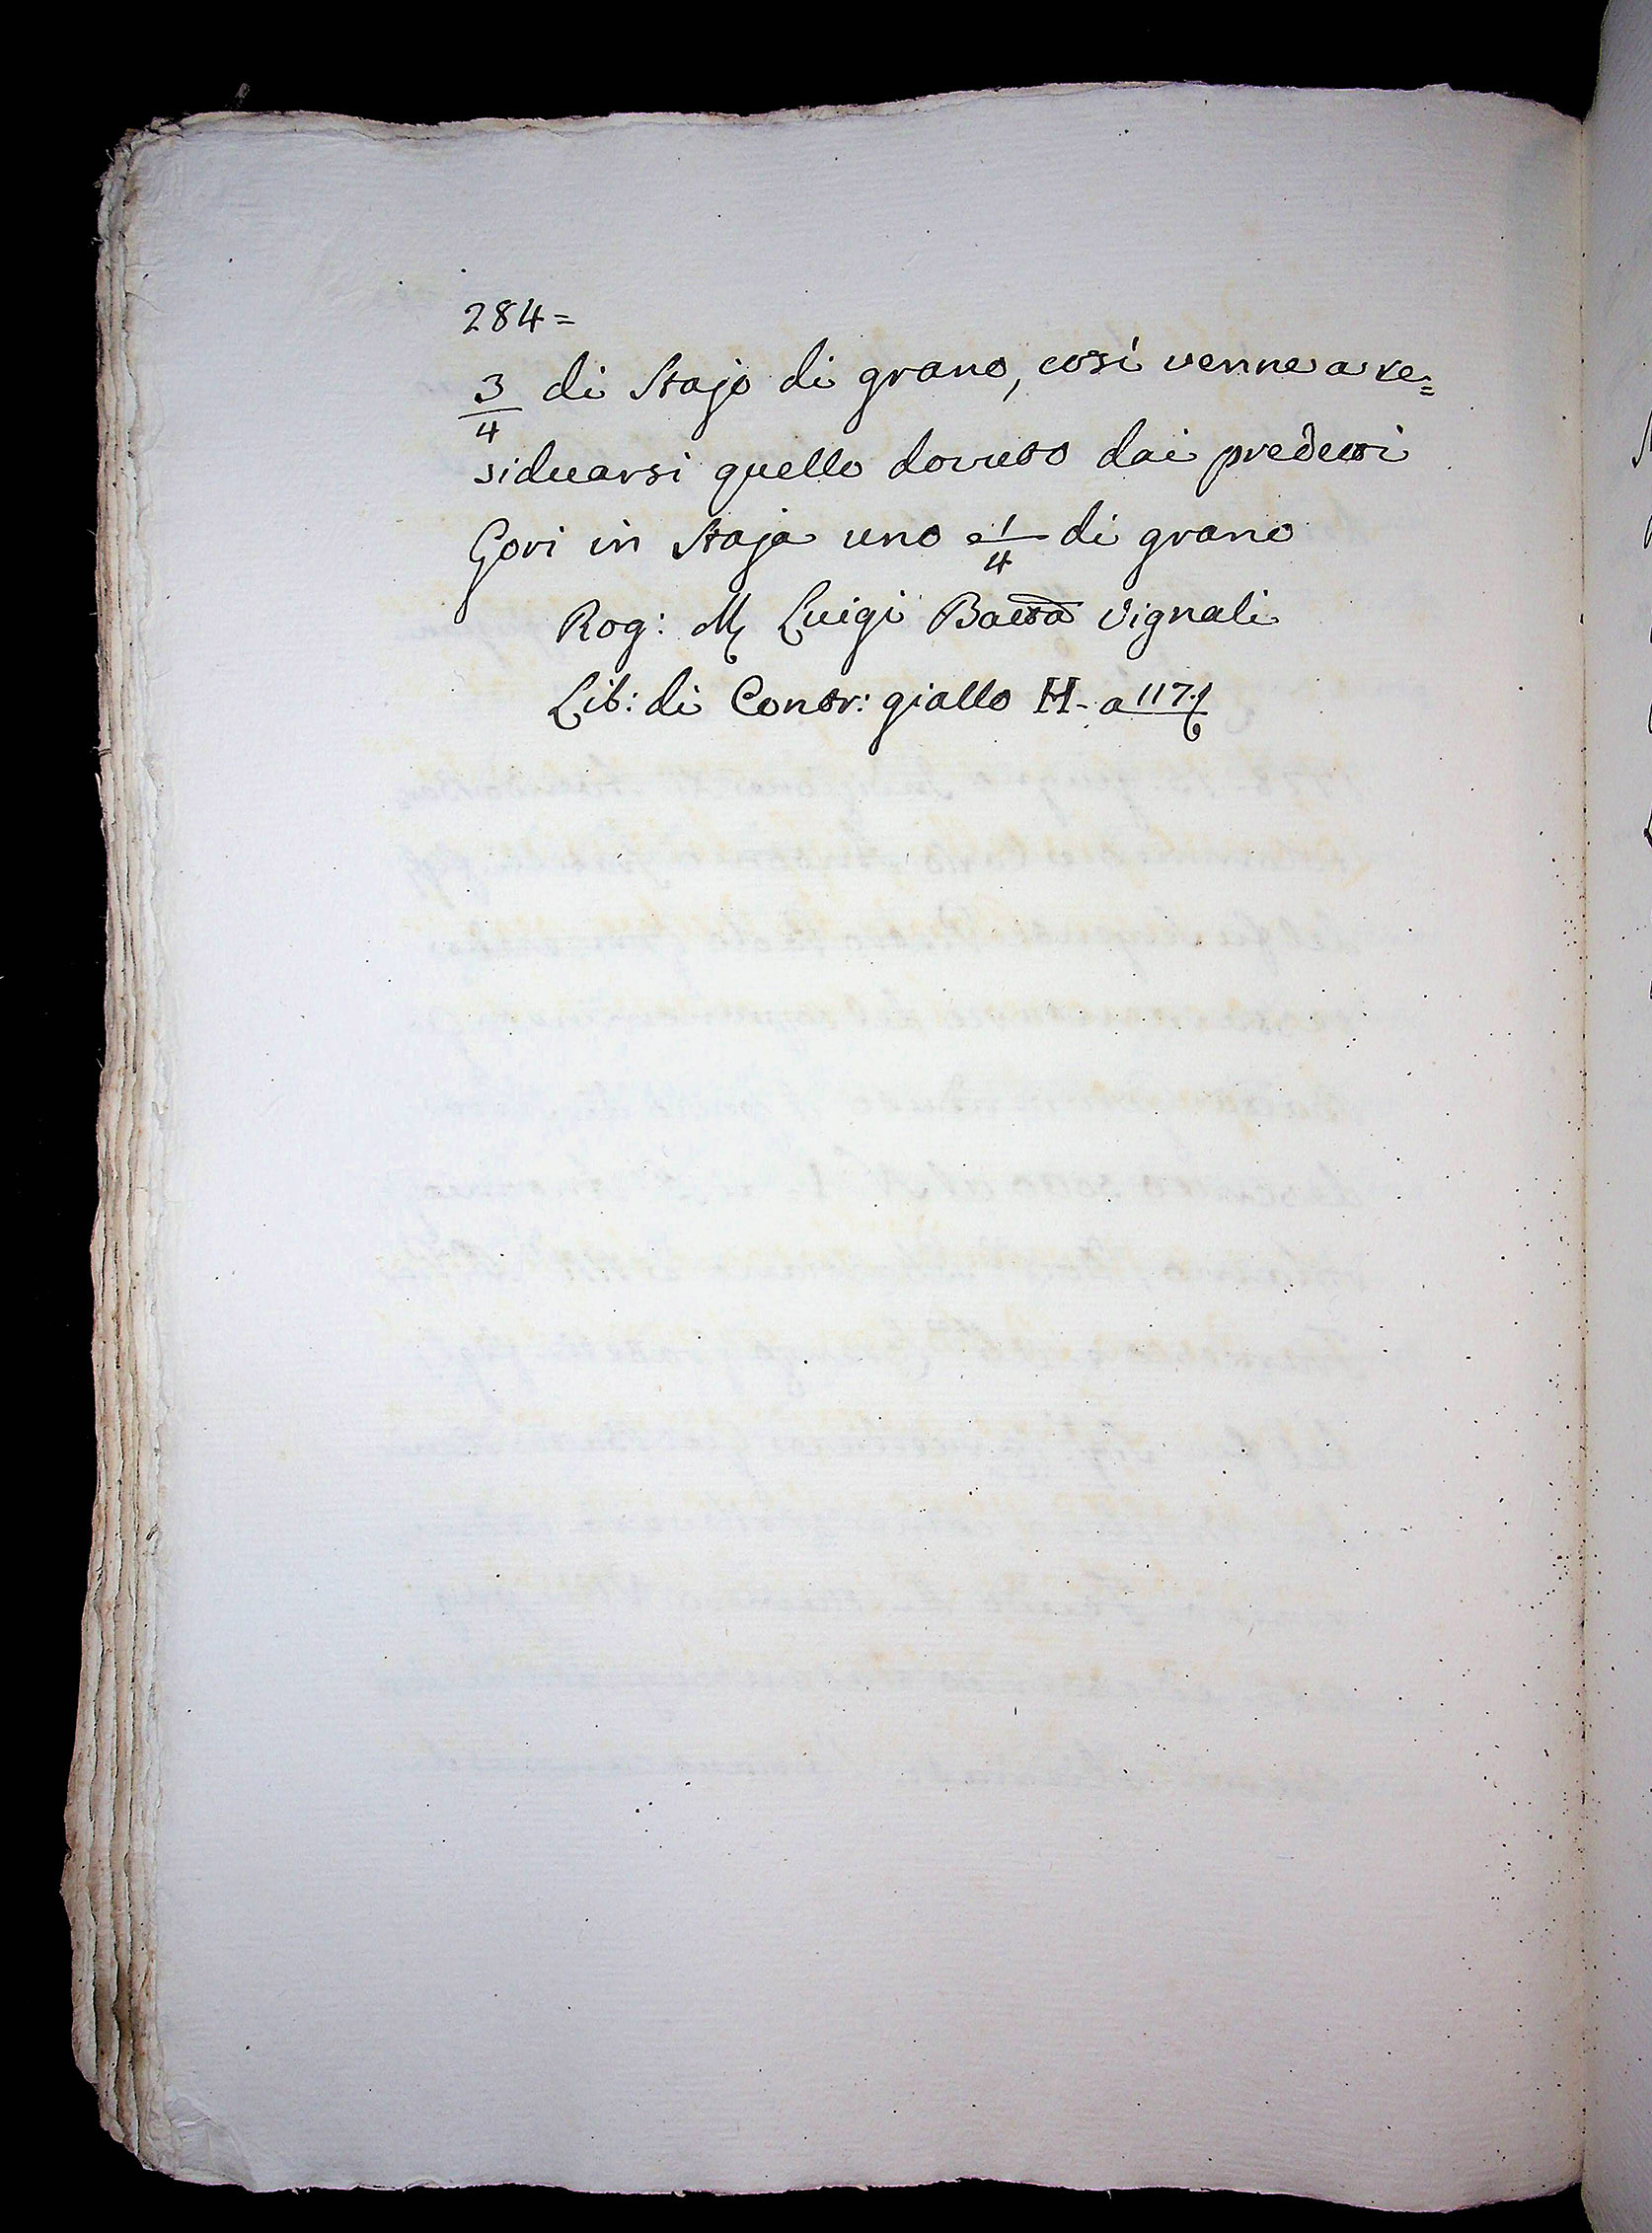 284=
3/4 di Stajo di grano, così venne a re=
siduarsi quello dovuto dai predetti
Gori in Staja uno e 1/4 di grano
Rog: M Luigi Batta Vignali
Lib: di Contr: giallo H- a 117.